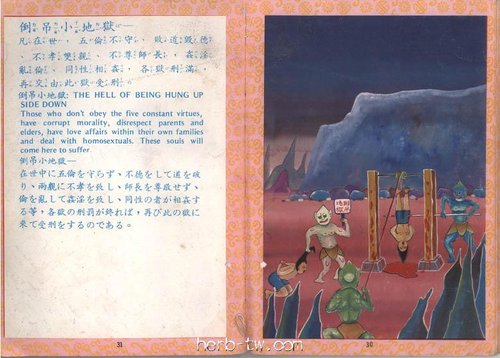 倒吊小地獄—
凡在世,五倫不守、敗道毀德
、不孝雙親、不尊師長,姦淫
亂倫、同性相姦,各獄刑滿,
再交由此獄受刑。
倒吊小地獄: THE HELL OF BEING HUNG UP
SIDE DOWN
Those who don't obey the five constant virtues,
have corrupt morality, disrespect parents and
elders, have love affairs within their own families
and deal with homosextuals. These souls will
come here to suffer.
倒吊小地獄—
在世中に五倫を守らず、不德をして道を破
り、兩親に不孝を致し、師長を尊敬せず、
倫を亂して姦淫を致し、同性の者が相姦す
る等,各獄の刑罰が終れば、再び此の獄に
來て受刑をするのである。
31
30
herb-tw.com